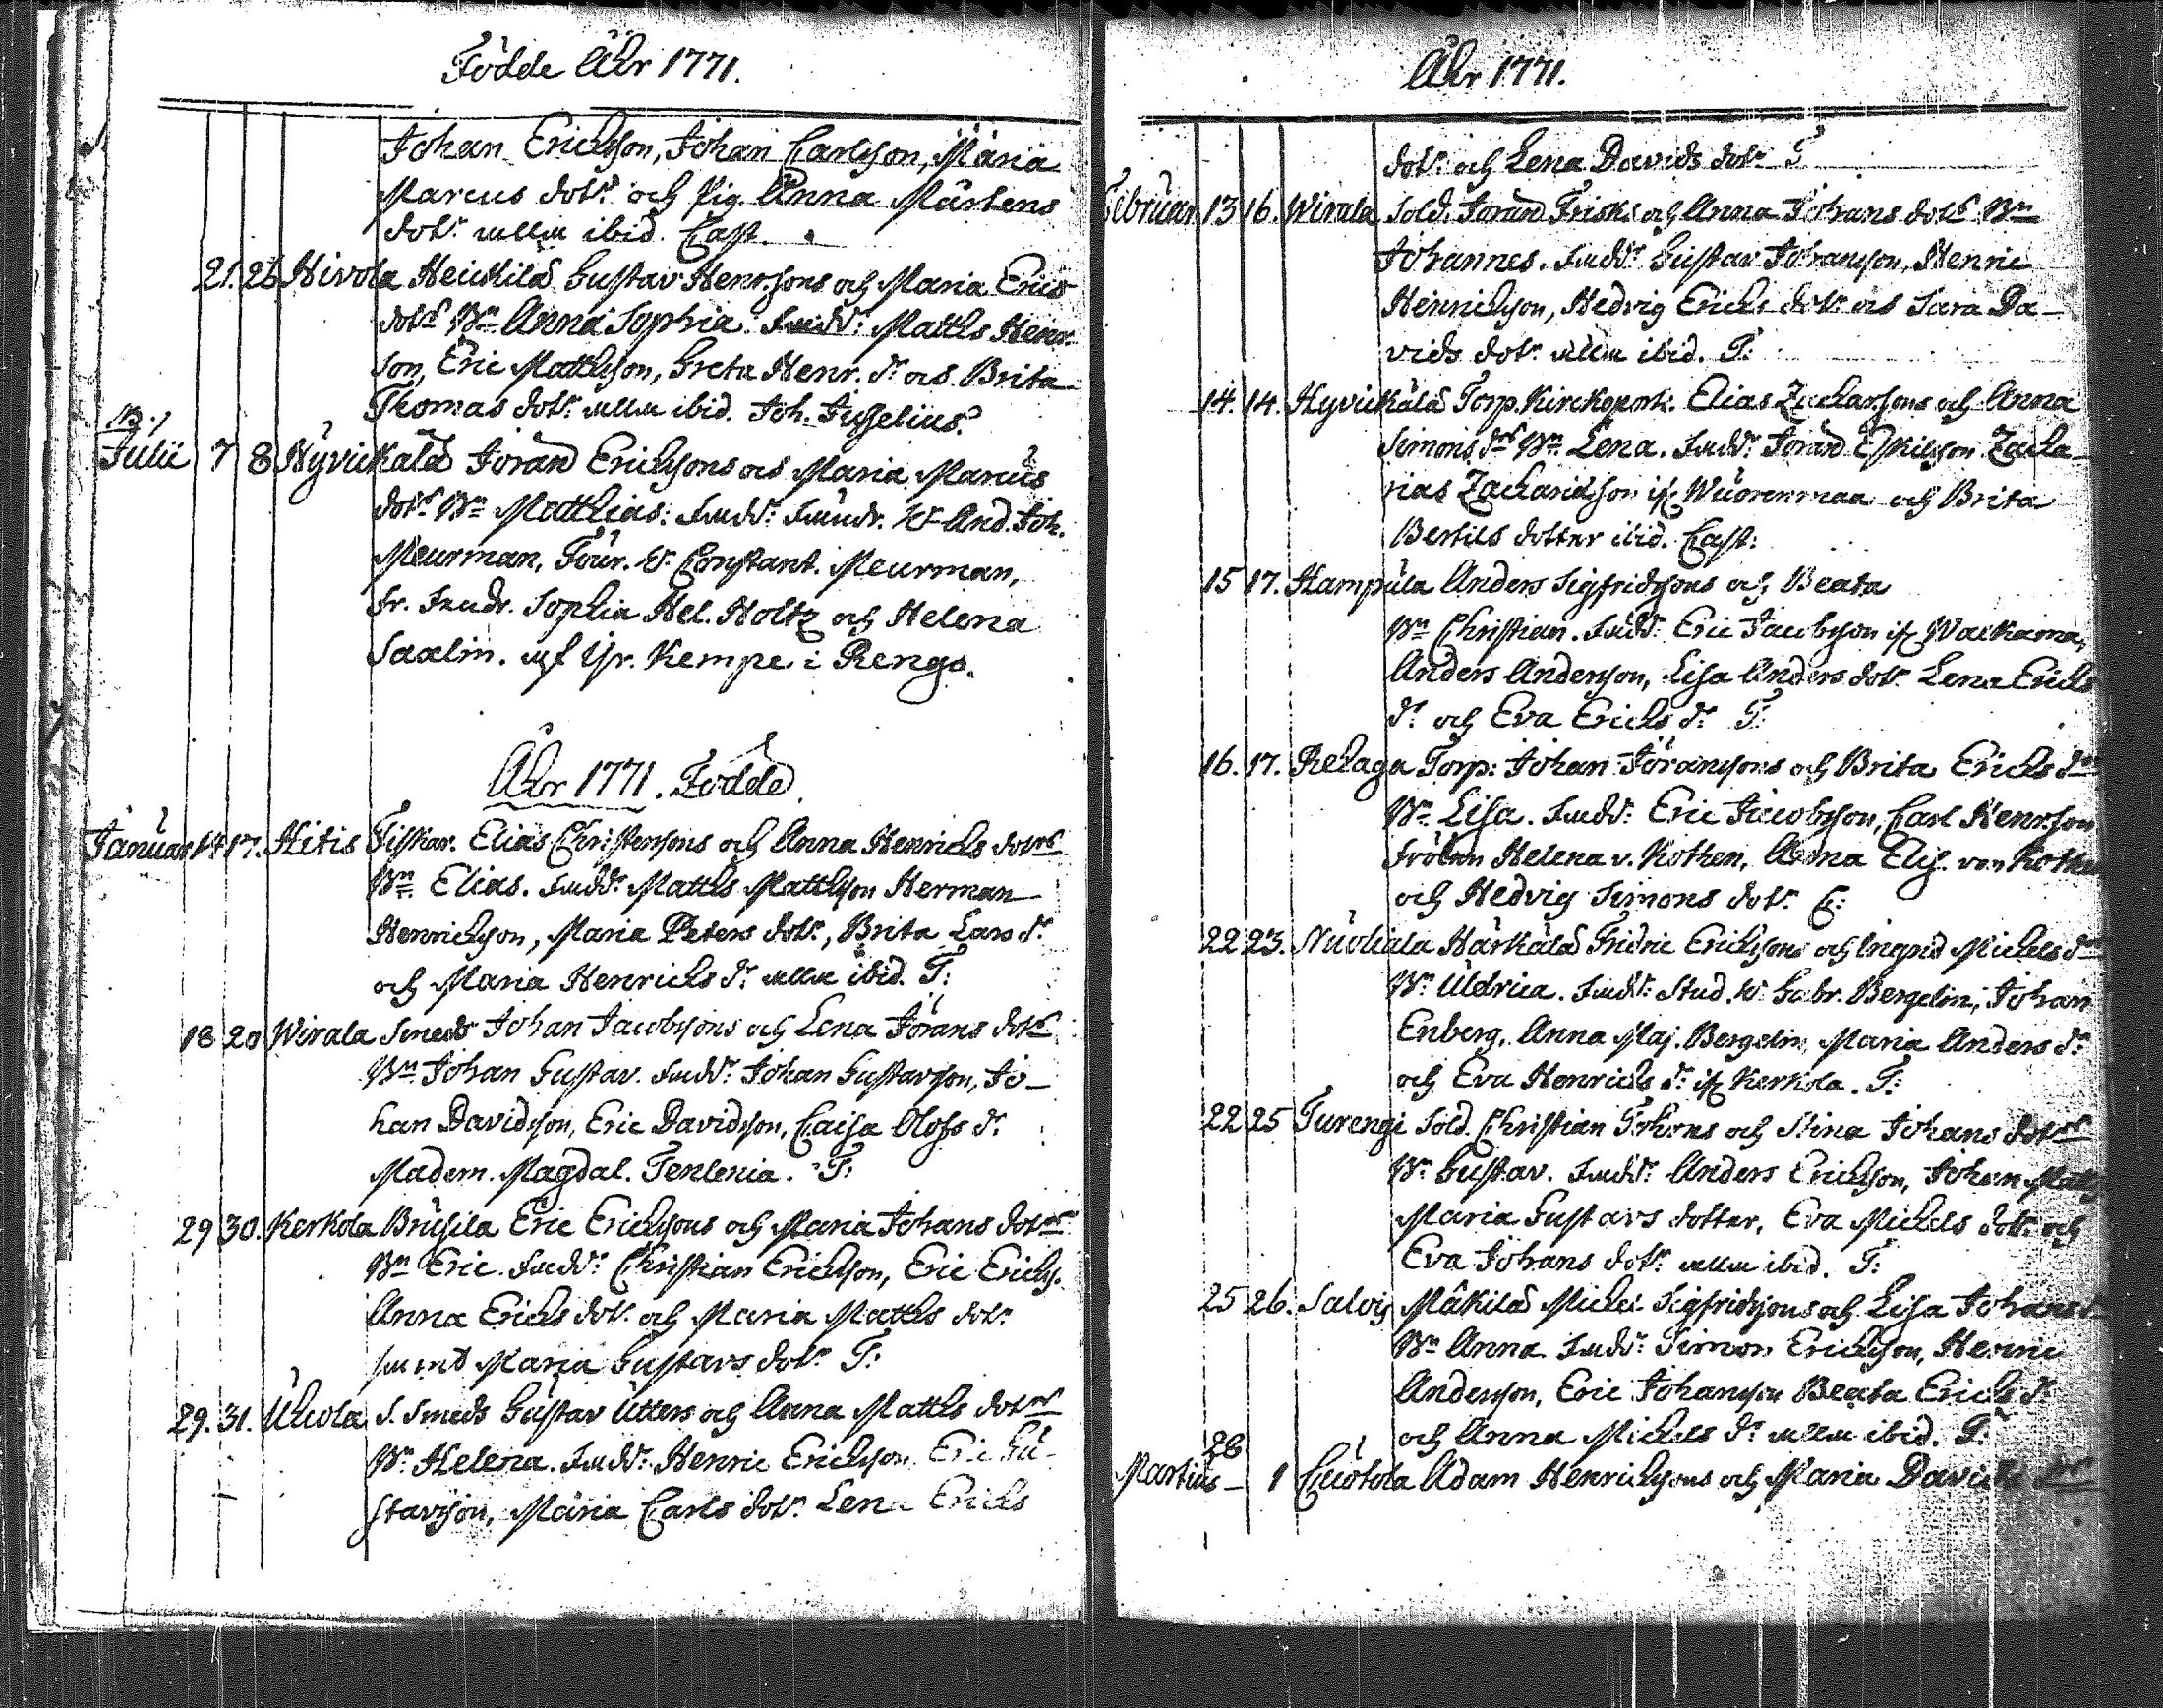 Födde Åhr 1771.
Johan Ericksson, Johan Carlsson, Maria
Marcus dotr och Pig. Anna Mårtens
dotr allm ibid. Cast.
21. 26 Hivola Heickilä Gustav Henr.sons och Maria Erics
dotrs Bn Anna Sophia. Fadd: Matths Henr.
son, Eric Matthsson, Greta Henr. dr och Brita
Thomas dotr allm ibid. Joh. Jusselius.
NB.
Julii 7 8 Hyvickälä Jöran Ericksons och Maria Marcus
dotrs Bn Matthias. Fadd:
Meurman, Four. H. Constant. Meurman,
Sophia Hel. Holtz och Helena
Saxlin. af Kempe i Rengo.
Åhr 1771. Födde.
Januar 14 17. Hitis Fiskar. Elias Christerssons och Anna Henrichs dotrs
Bn Elias. Fadd: Matths Matthsson Herman
Henrichson, Maria Peters dotr, Brita Lars dr
och Maria Henrichs dr allm ibid. T:
18 20 Wirala Smeds Johan Jacobssons och Lena Jörans dotrs
Bn Johan Gustav. Fadd: Johan Gustavson, Jo-
han Davidsson, Eric Davidsson, Caisa Olofs dr
Madem. Magdal. Tenlenia. T:
29 30. Kerkola Brusila Eric Ericksons och Maria Johans dotrs
Bn Eric. Fadd: Christian Erickson, Eric Ericks.
Anna Ericks dotr och Maria Matths dotr
samt Maria Gustavs dotr T:
29. 31. Uhkola S. Smeds Gustav Utters och Anna Matths dotrs
Bn Helena. Fadd: Henric Erickson Eric Gu-
stavson, Maria Carls dotr Lena Ericks
Åhr 1771.
dotr och Lena Davids dotr T
Februar. 13 16. Wirala Sold. Jöran Frisks och Anna Johans dotrs Bn
Johannes. Fadd: Gustav Johansson, Henric
Heinrichson, Hedvig Ericks dotr och Sara Da-
vids dotr allm ibid. T:
14. 14. Hyvickälä Torp. Kirckopork. Elias Zachar.sons och Anna
Simons drs Bn Lena. Fadd: Jöran Eskilsson Zacha-
rias Zachariäson if: Wuorenmaa och Brita
Bertils dotter ibid. Cast:
15 17. Hampula Anders Sigfridssons och Beata
Bn Christian. Fadd: Eric Jacobsson if: Walkama,
Anders Andersson, Lisa Anders dotr Lena Ericks
dr och Eva Ericks dr T:
16. 17. Rehaga Torp: Johan Jöranssons och Brita Ericks drs
Bn Lisa. Fadd: Eric Jacobsson, Carl Henr.son
Frökn Helena v. Kothen, Anna Elis. von Kothen
och Hedvig Simons dotr C:
22 23. Nuoliala Härkälä Fridric Ericksons och Ingrid Michels drs
Bn Uldrica. Fadd: Stud. H. Gabr. Bergelin, Johan
Enberg, Anna Maj. Bergelin, Maria Anders dr
och Eva Henrichs dr if: Kerkola. T:
22 25 Turengi Sold. Christian Johans och Stina Johans dotrs
Bn Gustav. Fadd: Anders Erickson, Johan Matts
Maria Gustavs dotter, Eva Michels dotr och
Eva Johans dotr allm ibid. T:
25 26. Salvis Mäkilä Michel Sigfridssons och Lisa Johans
Bn Anna Fadd: Simon Erickson, Henric
Andersson, Eric Johansson Beata Ericks dr
och Anna Michels dr allm ibid. T:
28
Martius – 1 Cuotola Adam Henrichsons och Maria Davids drs